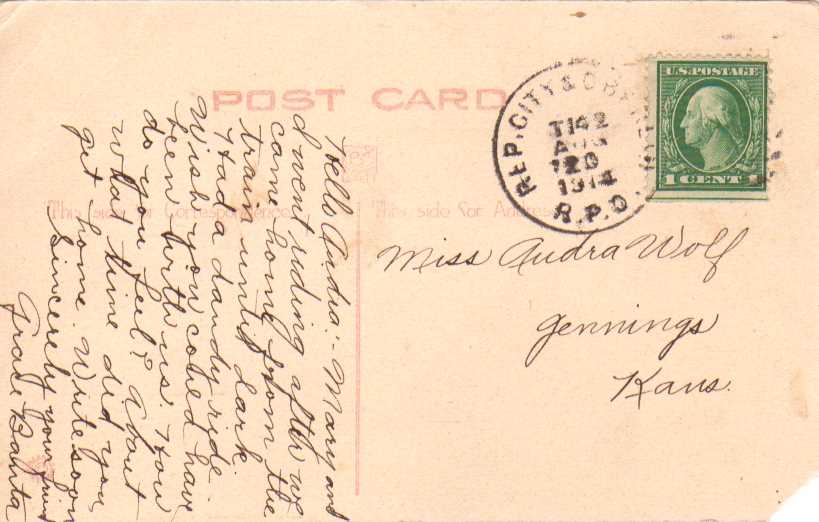 POST CARD
This side for Correspondence
This side for Address
U.S. POSTAGE
1 CENT 1
REP. CITY & OBERLIN
T 142
AUG
20
1914
R.P.O.
Miss Audra Wolf
Jennings
Kans.
Hello Audra:- Mary and
I went riding after we
came home from the
train until dark
Had a dandy ride.
Wish you coued have
been with us. How
do you feel? About
what time did you
get home. Write soon
Sincerely your friend
Grace Banta